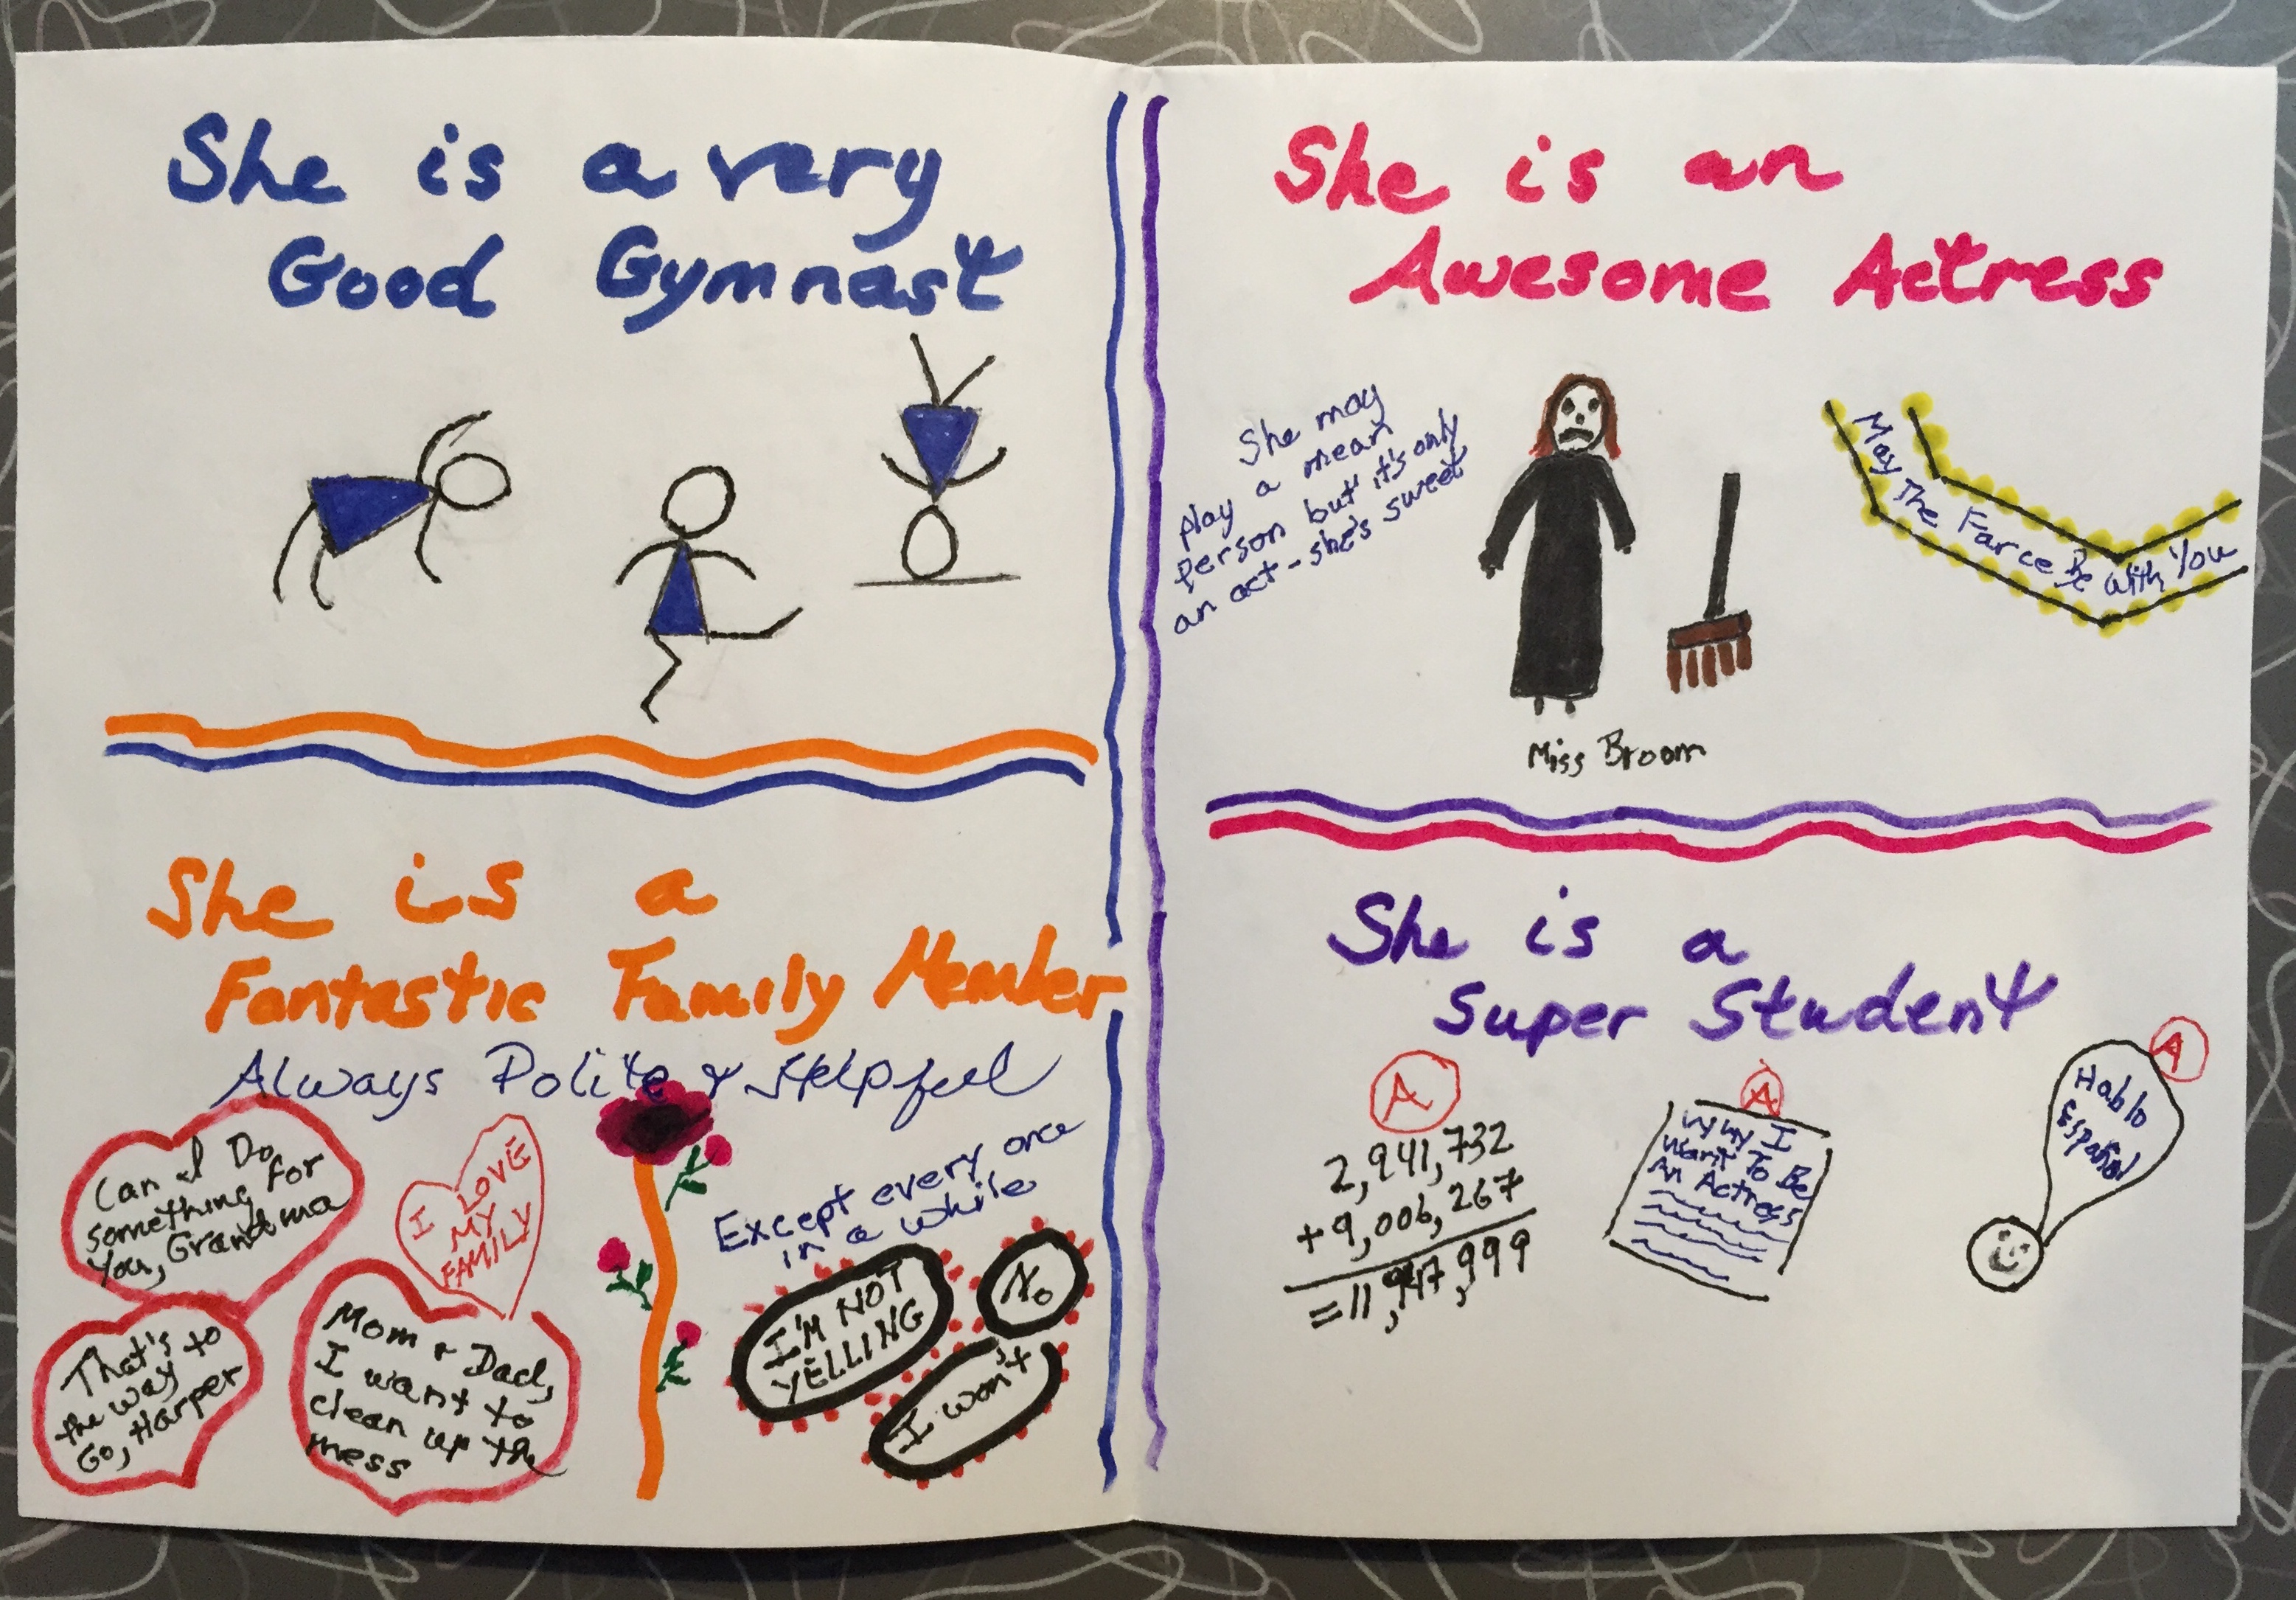 She is a very
Good Gymnast
She is a
Fantastic Family Member
Always Polite & Helpful
Can I Do
something for
You, Grandma
I LOVE
MY
FAMILY
That's
the way to
Go, Harper
Mom & Dad,
I want to
clean up the
mess
Except every once
in a while
I'M NOT
YELLING
No
I won't
She is an
Awesome Actress
She may
play a mean
person but it's only
an act - she's sweet
Miss Broom
May The Farce Be With You
She is a
Super Student
A
2,941,732
+9,006,267
=11,947,999
A
Why I
Want To Be
An Actress
A
Hablo
Español